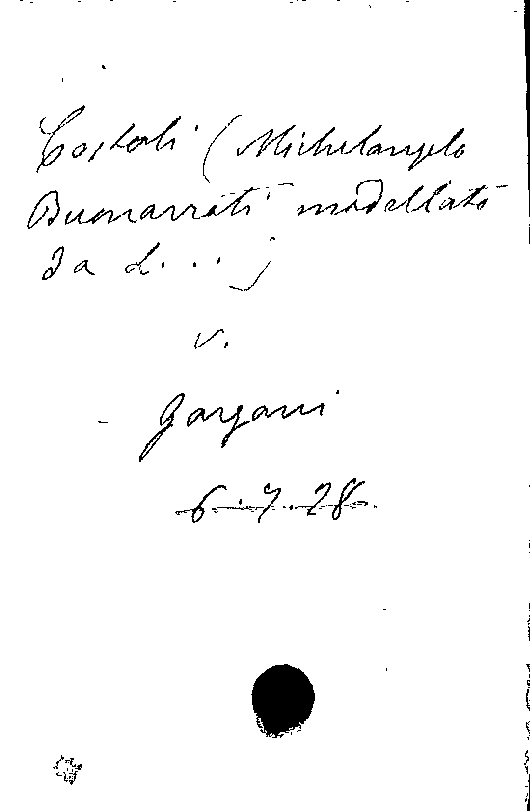 Costoli (Michelangelo
Buonarroti modellato
da L. . . )
v.
Gargani
6.7.28.